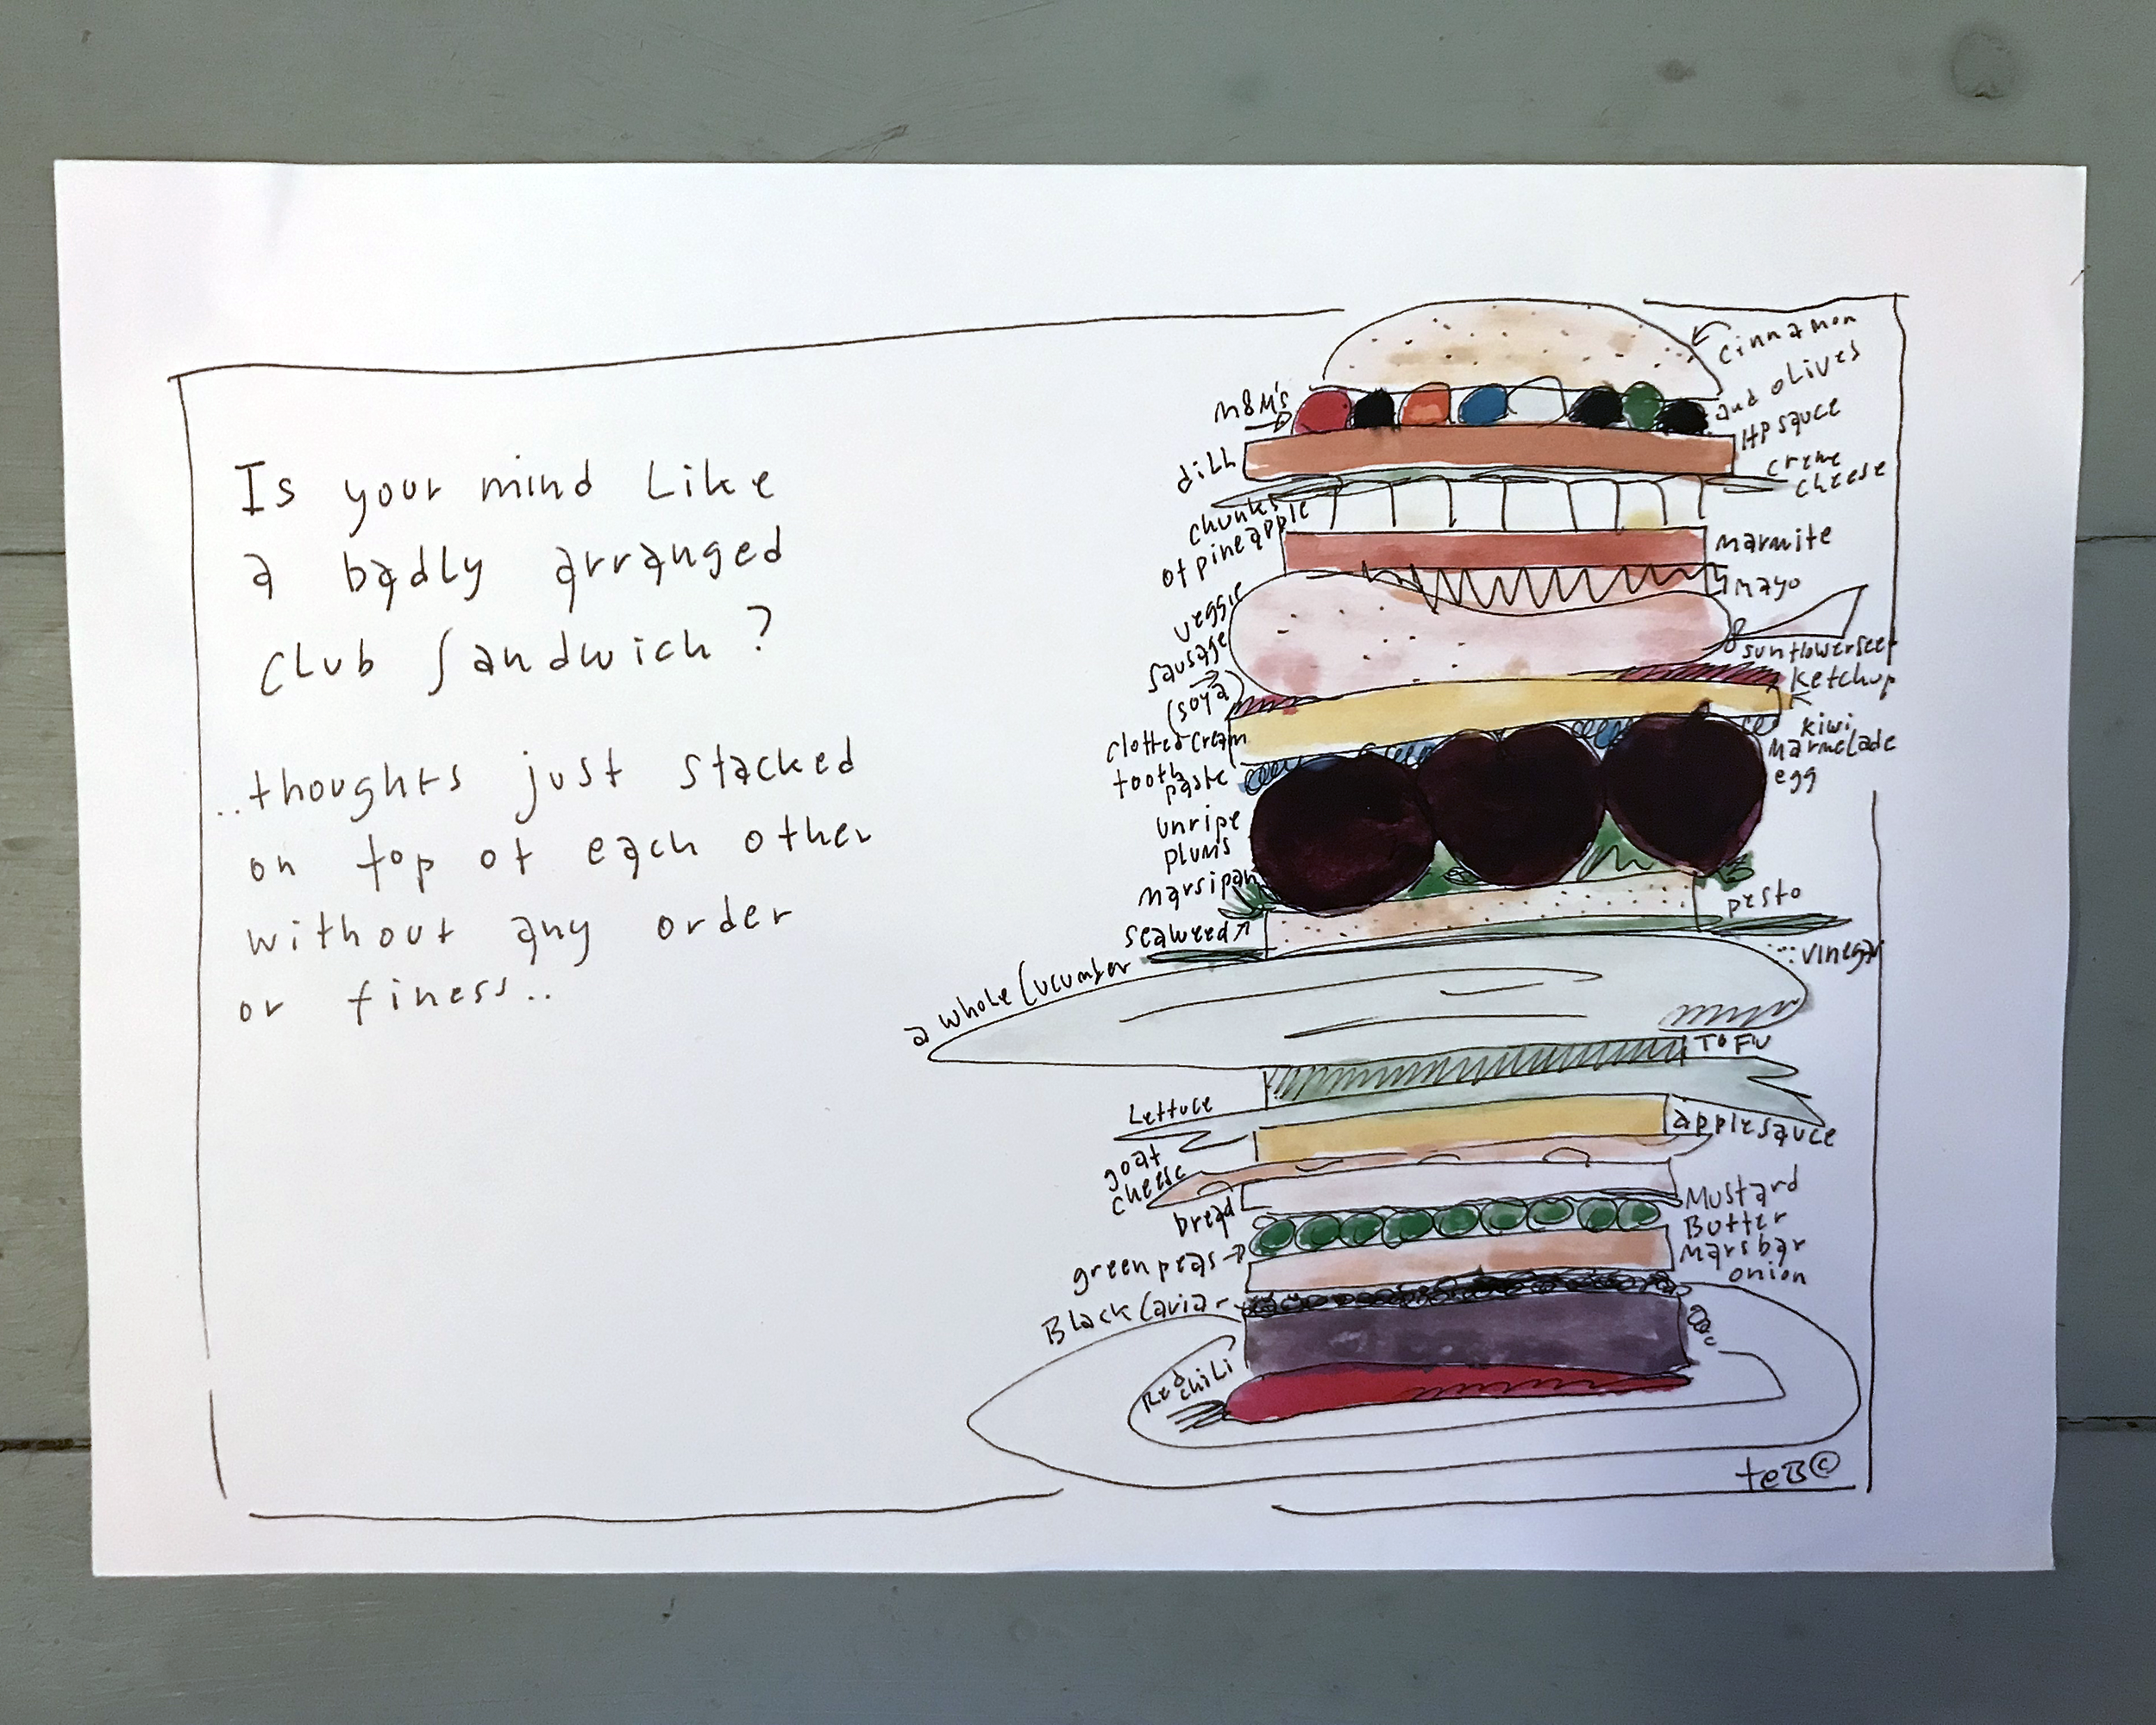 Is your mind Like
a badly arranged
Club Sandwich?
..thoughts just stacked
on top of each other
without any order
or finess..
cinnamon
M&M's
and olives
HP sauce
dill
creme
cheese
chunks
of pineapple
marmite
mayo
veggie
sausage
(soya)
sunflowerseed
ketchup
clotted cream
kiwi
marmelade
egg
tooth
paste
unripe
plums
marsipan
pesto
seaweed
vinegar
a whole Cucumber
TOFU
Lettuce
applesauce
goat
cheese
bread
Mustard
Butter
Marsbar
onion
green peas
Black Caviar
Red
chiLi
teB©